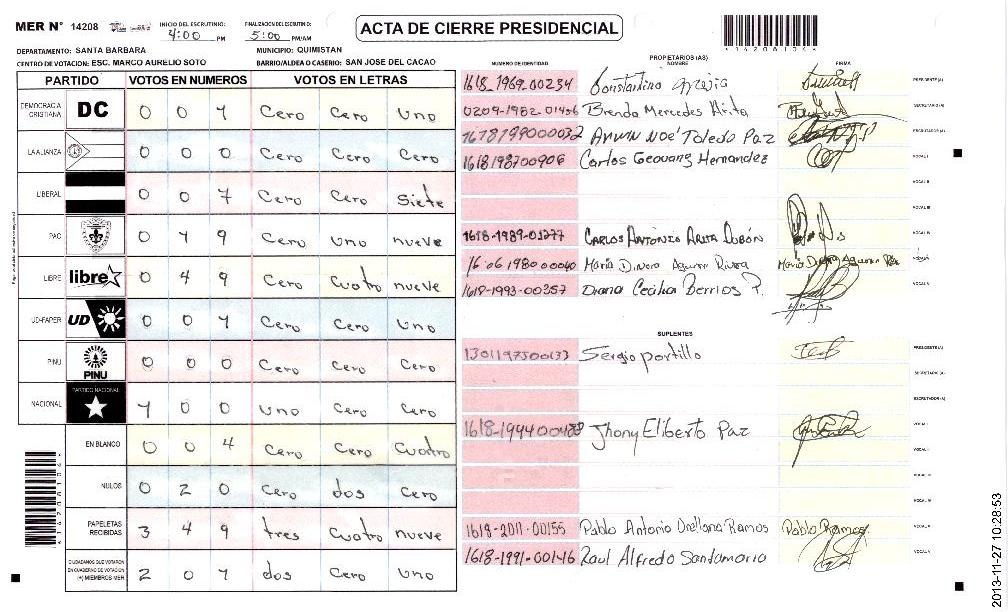 MER N° 14208 INICIO DEL ESCRUTINIO: 4:00 PM FINALIZACION DEL ESCRUTINIO: 5:00 PM/AM
ACTA DE CIERRE PRESIDENCIAL
*14208104*
DEPARTAMENTO: SANTA BARBARA MUNICIPIO: QUIMISTAN
CENTRO DE VOTACION: ESC. MARCO AURELIO SOTO BARRIO/ALDEA O CASERIO: SAN JOSE DEL CACAO
PARTIDO VOTOS EN NUMEROS VOTOS EN LETRAS
DEMOCRACIA CRISTIANA DC 0 0 1 Cero Cero Uno
LA ALIANZA 0 0 0 Cero Cero Cero
LIBERAL 0 0 7 Cero Cero Siete
PAC 0 1 9 Cero uno nueve
LIBRE libre 0 4 9 Cero Cuatro nueve
UD-FAPER UD 0 0 1 Cero Cero Uno
PINU PINU 0 0 0 Cero Cero Cero
NACIONAL PARTIDO NACIONAL 1 0 0 uno Cero Cero
EN BLANCO 0 0 4 Cero Cero Cuatro
NULOS 0 2 0 Cero dos Cero
PAPELETAS RECIBIDAS 3 4 9 tres Cuatro nueve
CIUDADANOS QUE VOTARON EN CUADERNO DE VOTACION (+) MIEMBROS MER 2 0 1 dos Cero Uno
NUMERO DE IDENTIDAD PROPIETARIOS (AS) NOMBRE FIRMA
1618-1969-00234 Constantino PRESIDENTE(A)
0209-1982-01456 Brenda Mercedes Arita SECRETARIO(A)
1618199000032 Noé Toledo Paz ESCRUTADOR(A)
1618198700906 Carlos Geovany Hernandez VOCAL I
VOCAL II
VOCAL III
1618-1989-01277 CARLOS ANTONIO ARITA DUBÓN VOCAL IV
16 06 1980 00040 Maria Dinora Aguirre Rivera
1618-1993-00357 Diana Cecilia Berrios P. VOCAL V
SUPLENTES
1301197500133 Sergio portillo PRESIDENTE(A)
SECRETARIO(A)
ESCRUTADOR(A)
1618-1994 00488 Jhony Eliberto Paz VOCAL I
VOCAL II
VOCAL III
VOCAL IV
1618-2011-00155 Pablo Antonio Orellana Ramos Pablo Ramos
1618-1991-00146 Raul Alfredo Santamaria VOCAL V
2013-11-27 10:28:53